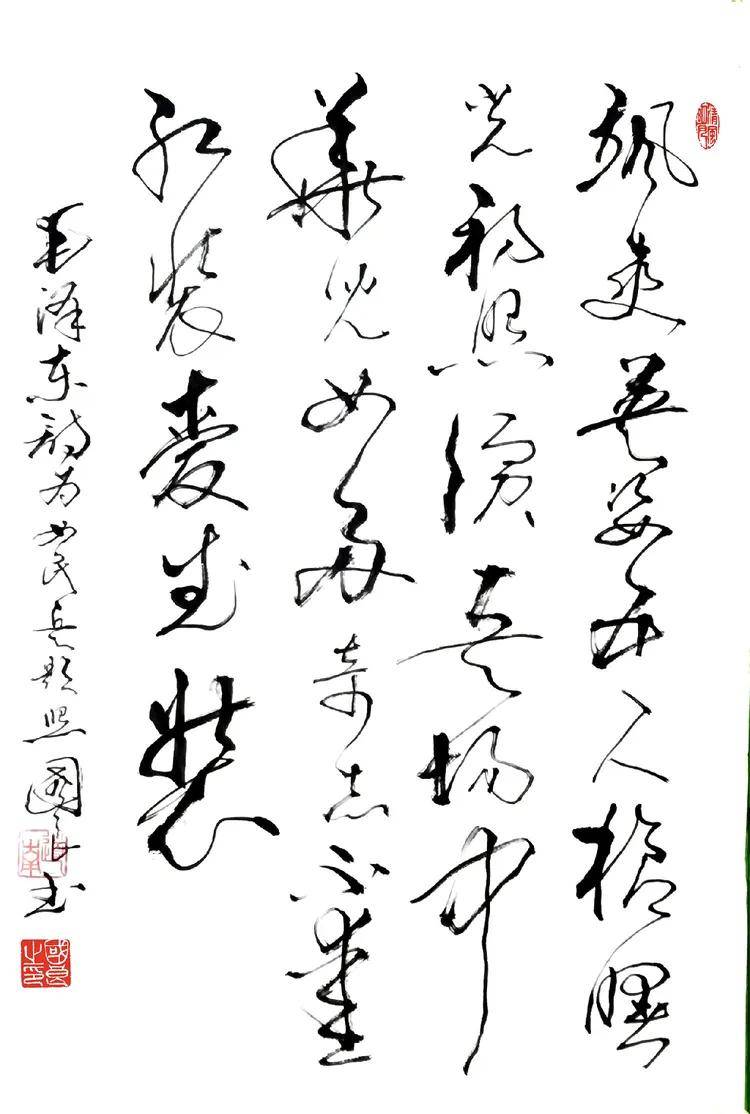 飒爽英姿五尺枪曙
光初照演兵场中
華儿女多奇志不爱
红装爱武装
毛泽东诗为女民兵题照國良书
國良之印